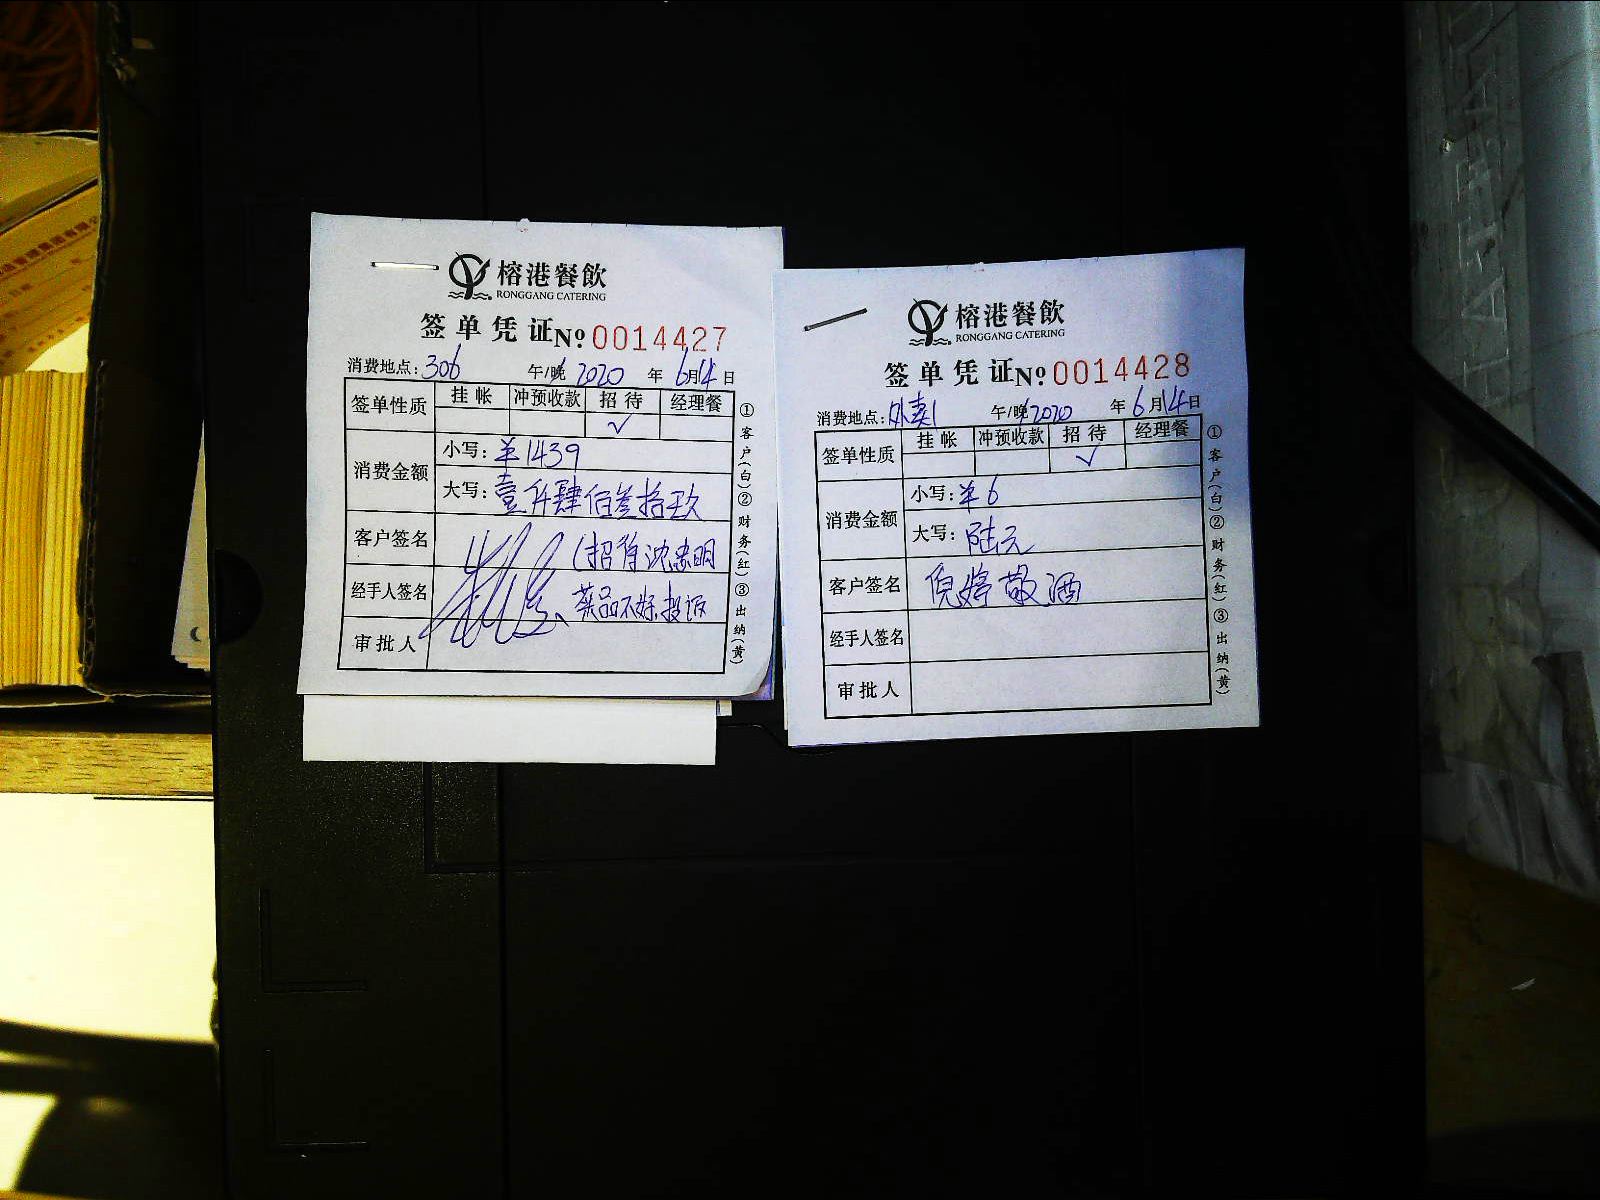 榕港餐飲
RONGGANG CATERING
签单凭证 Nº 0014427
消费地点: 306 午/晚 2020 年 6月14日
签单性质 挂帐 冲预收款 招待 经理餐
√
消费金额 小写: ¥1439
大写: 壹仟肆佰叁拾玖
客户签名 (招待沈忠明
经手人签名 菜品不好,投诉
审批人
①客户(白)②财务(红)③出纳(黄)
榕港餐飲
RONGGANG CATERING
签单凭证 Nº 0014428
消费地点: 外卖1 午/晚 2020 年 6月14日
签单性质 挂帐 冲预收款 招待 经理餐
√
消费金额 小写: ¥6
大写: 陆元
客户签名 倪婷敬酒
经手人签名
审批人
①客户(白)②财务(红)③出纳(黄)